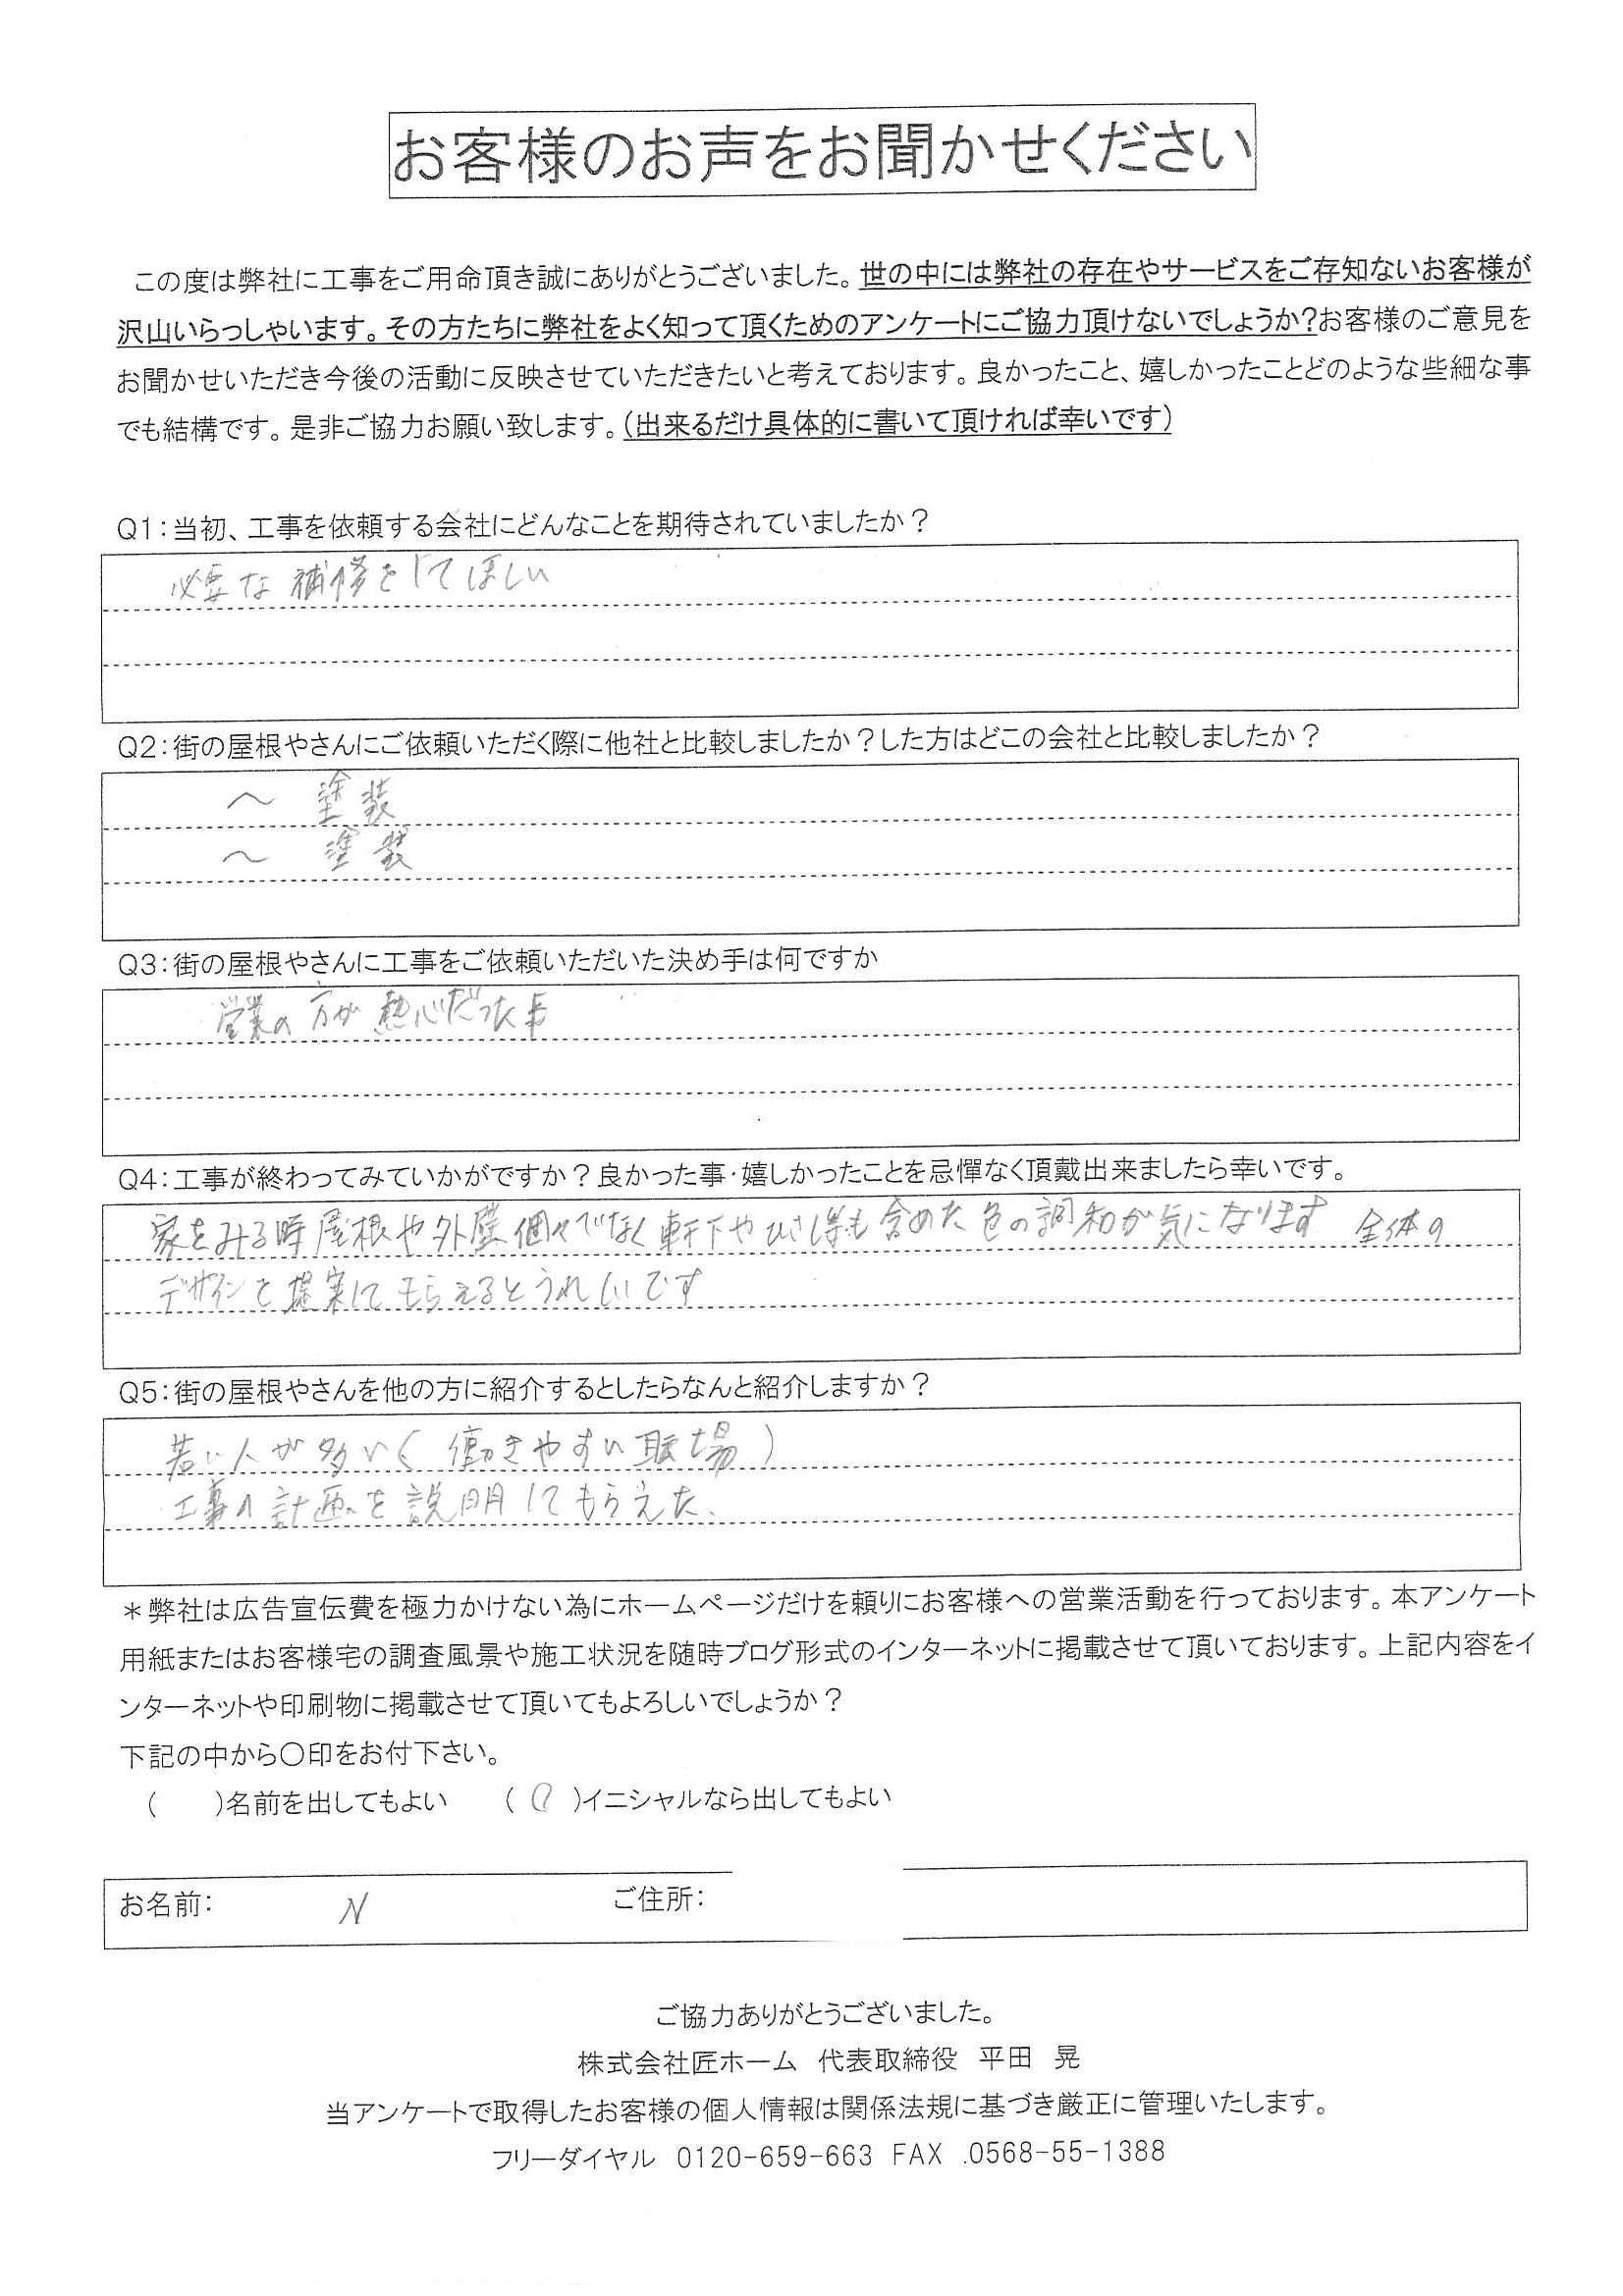 お客様のお声をお聞かせください
この度は弊社に工事をご用命頂き誠にありがとうございました。世の中には弊社の存在やサービスをご存知ないお客様が
沢山いらっしゃいます。その方たちに弊社をよく知って頂くためのアンケートにご協力頂けないでしょうか?お客様のご意見を
お聞かせいただき今後の活動に反映させていただきたいと考えております。良かったこと、嬉しかったことどのような些細な事
でも結構です。是非ご協力お願い致します。(出来るだけ具体的に書いて頂ければ幸いです)
Q1:当初、工事を依頼する会社にどんなことを期待されていましたか?
必要な補修をしてほしい
Q2:街の屋根やさんにご依頼いただく際に他社と比較しましたか?した方はどこの会社と比較しましたか?
〜 塗装
〜 塗装
Q3:街の屋根やさんに工事をご依頼いただいた決め手は何ですか
営業の方が熱心だった事
Q4:工事が終わってみていかがですか?良かった事・嬉しかったことを忌憚なく頂戴出来ましたら幸いです。
家をみる時屋根や外壁個々でなく軒下やひさし等も含めた色の調和が気になります 全体の
デザインを提案してもらえるとうれしいです
Q5:街の屋根やさんを他の方に紹介するとしたらなんと紹介しますか?
若い人が多い(働きやすい職場)
工事の計画を説明してもらえた、
*弊社は広告宣伝費を極力かけない為にホームページだけを頼りにお客様への営業活動を行っております。本アンケート
用紙またはお客様宅の調査風景や施工状況を随時ブログ形式のインターネットに掲載させて頂いております。上記内容をイ
ンターネットや印刷物に掲載させて頂いてもよろしいでしょうか?
下記の中から〇印をお付下さい。
( )名前を出してもよい (〇)イニシャルなら出してもよい
お名前: N ご住所:
ご協力ありがとうございました。
株式会社匠ホーム 代表取締役 平田 晃
当アンケートで取得したお客様の個人情報は関係法規に基づき厳正に管理いたします。
フリーダイヤル 0120-659-663 FAX .0568-55-1388